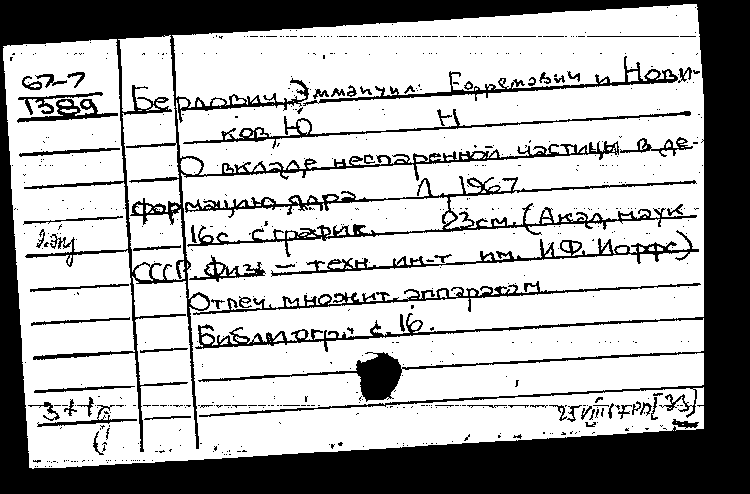 67-7
1389
Берлович, Эммануил Ефремович и Нови-
ков, Ю Н
О вкладе неспаренной частицы в де-
формацию ядра. Л., 1967.
16с. с график. 23см. (Акад. наук
2 экз
СССР. Физ.-техн. ин-т им. И.Ф. Иоффе)
Отпеч. множит. аппаратом.
Библиогр.: с. 16.
3+1
25 VIII 67